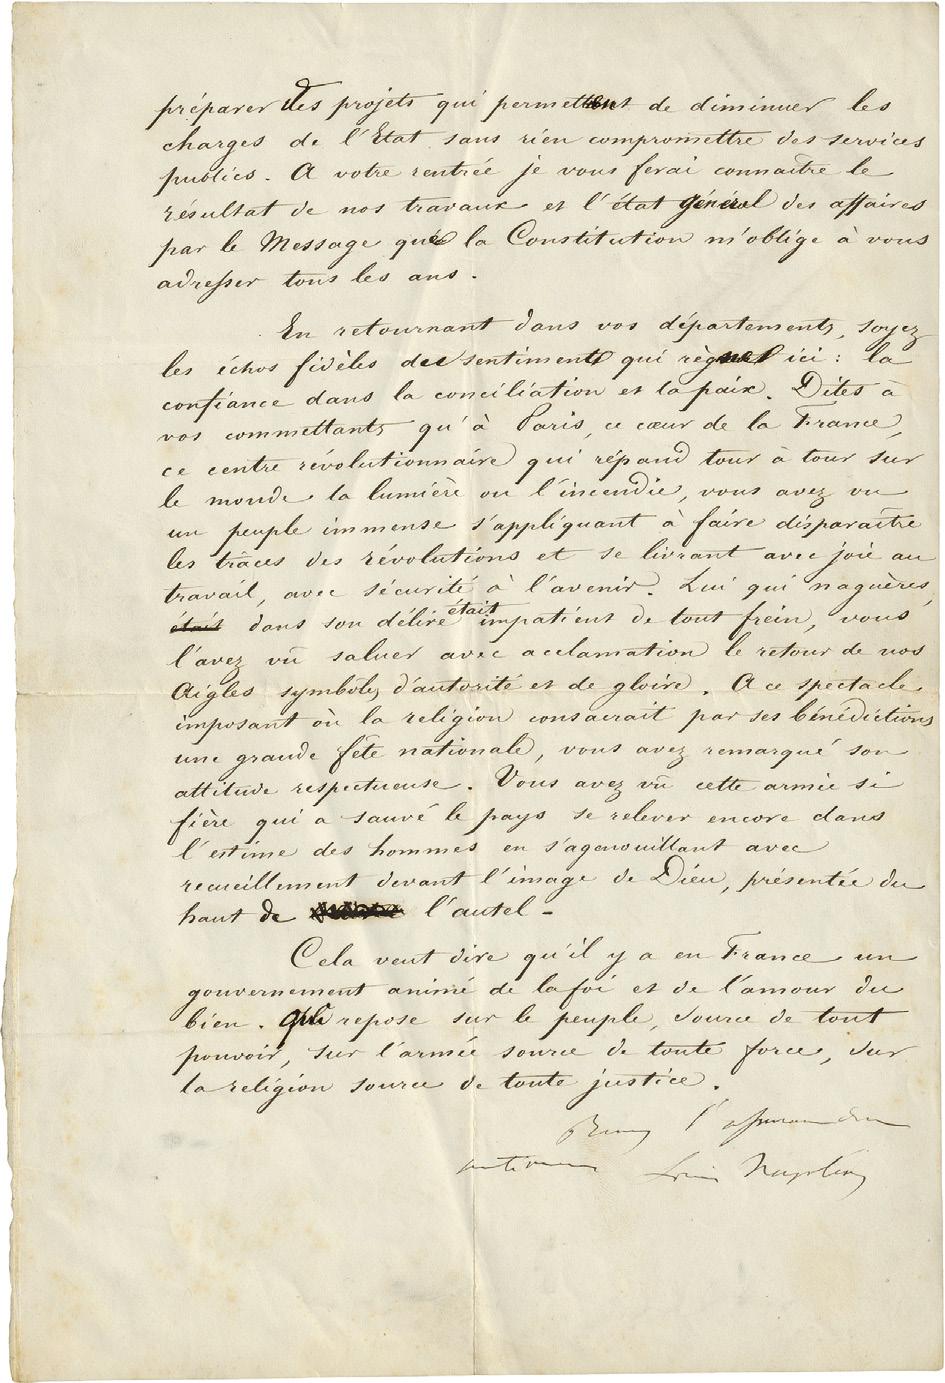 préparer des projets qui permettent de diminuer les
charges de l'Etat sans rien compromettre des services
publics. A votre rentrée je vous ferai connaître le
résultat de nos travaux et l'état général des affaires
par le Message que la Constitution m'oblige à vous
adresser tous les ans.
En retournant dans vos départements, soyez
les échos fidèles des sentiments qui règnent ici : la
confiance dans la conciliation et la paix. Dites à
vos commettants qu'à Paris, ce cœur de la France,
ce centre révolutionnaire qui répand tour à tour sur
le monde la lumière ou l'incendie, vous avez vu
un peuple immense s'appliquant à faire disparaître
les traces des révolutions et se livrant avec joie au
travail, avec sécurité à l'avenir. Lui qui naguères,
était dans son délire était impatient de tout frein, vous
l'avez vû saluer avec acclamation le retour de nos
Aigles symboles d'autorité et de gloire. A ce spectacle
imposant où la religion consacrait par ses bénédictions
une grande fête nationale, vous avez remarqué son
attitude respectueuse. Vous avez vû cette armée si
fière qui a sauvé le pays se relever encore dans
l'estime des hommes en s'agenouillant avec
recueillement devant l'image de Dieu, présentée du
haut de l'autel -
Cela veut dire qu'il y a en France un
gouvernement animé de la foi et de l'amour du
bien. Qui repose sur le peuple, source de tout
pouvoir, sur l'armée source de toute force, sur
la religion source de toute justice.
l'assurance de
Louis Napoléon